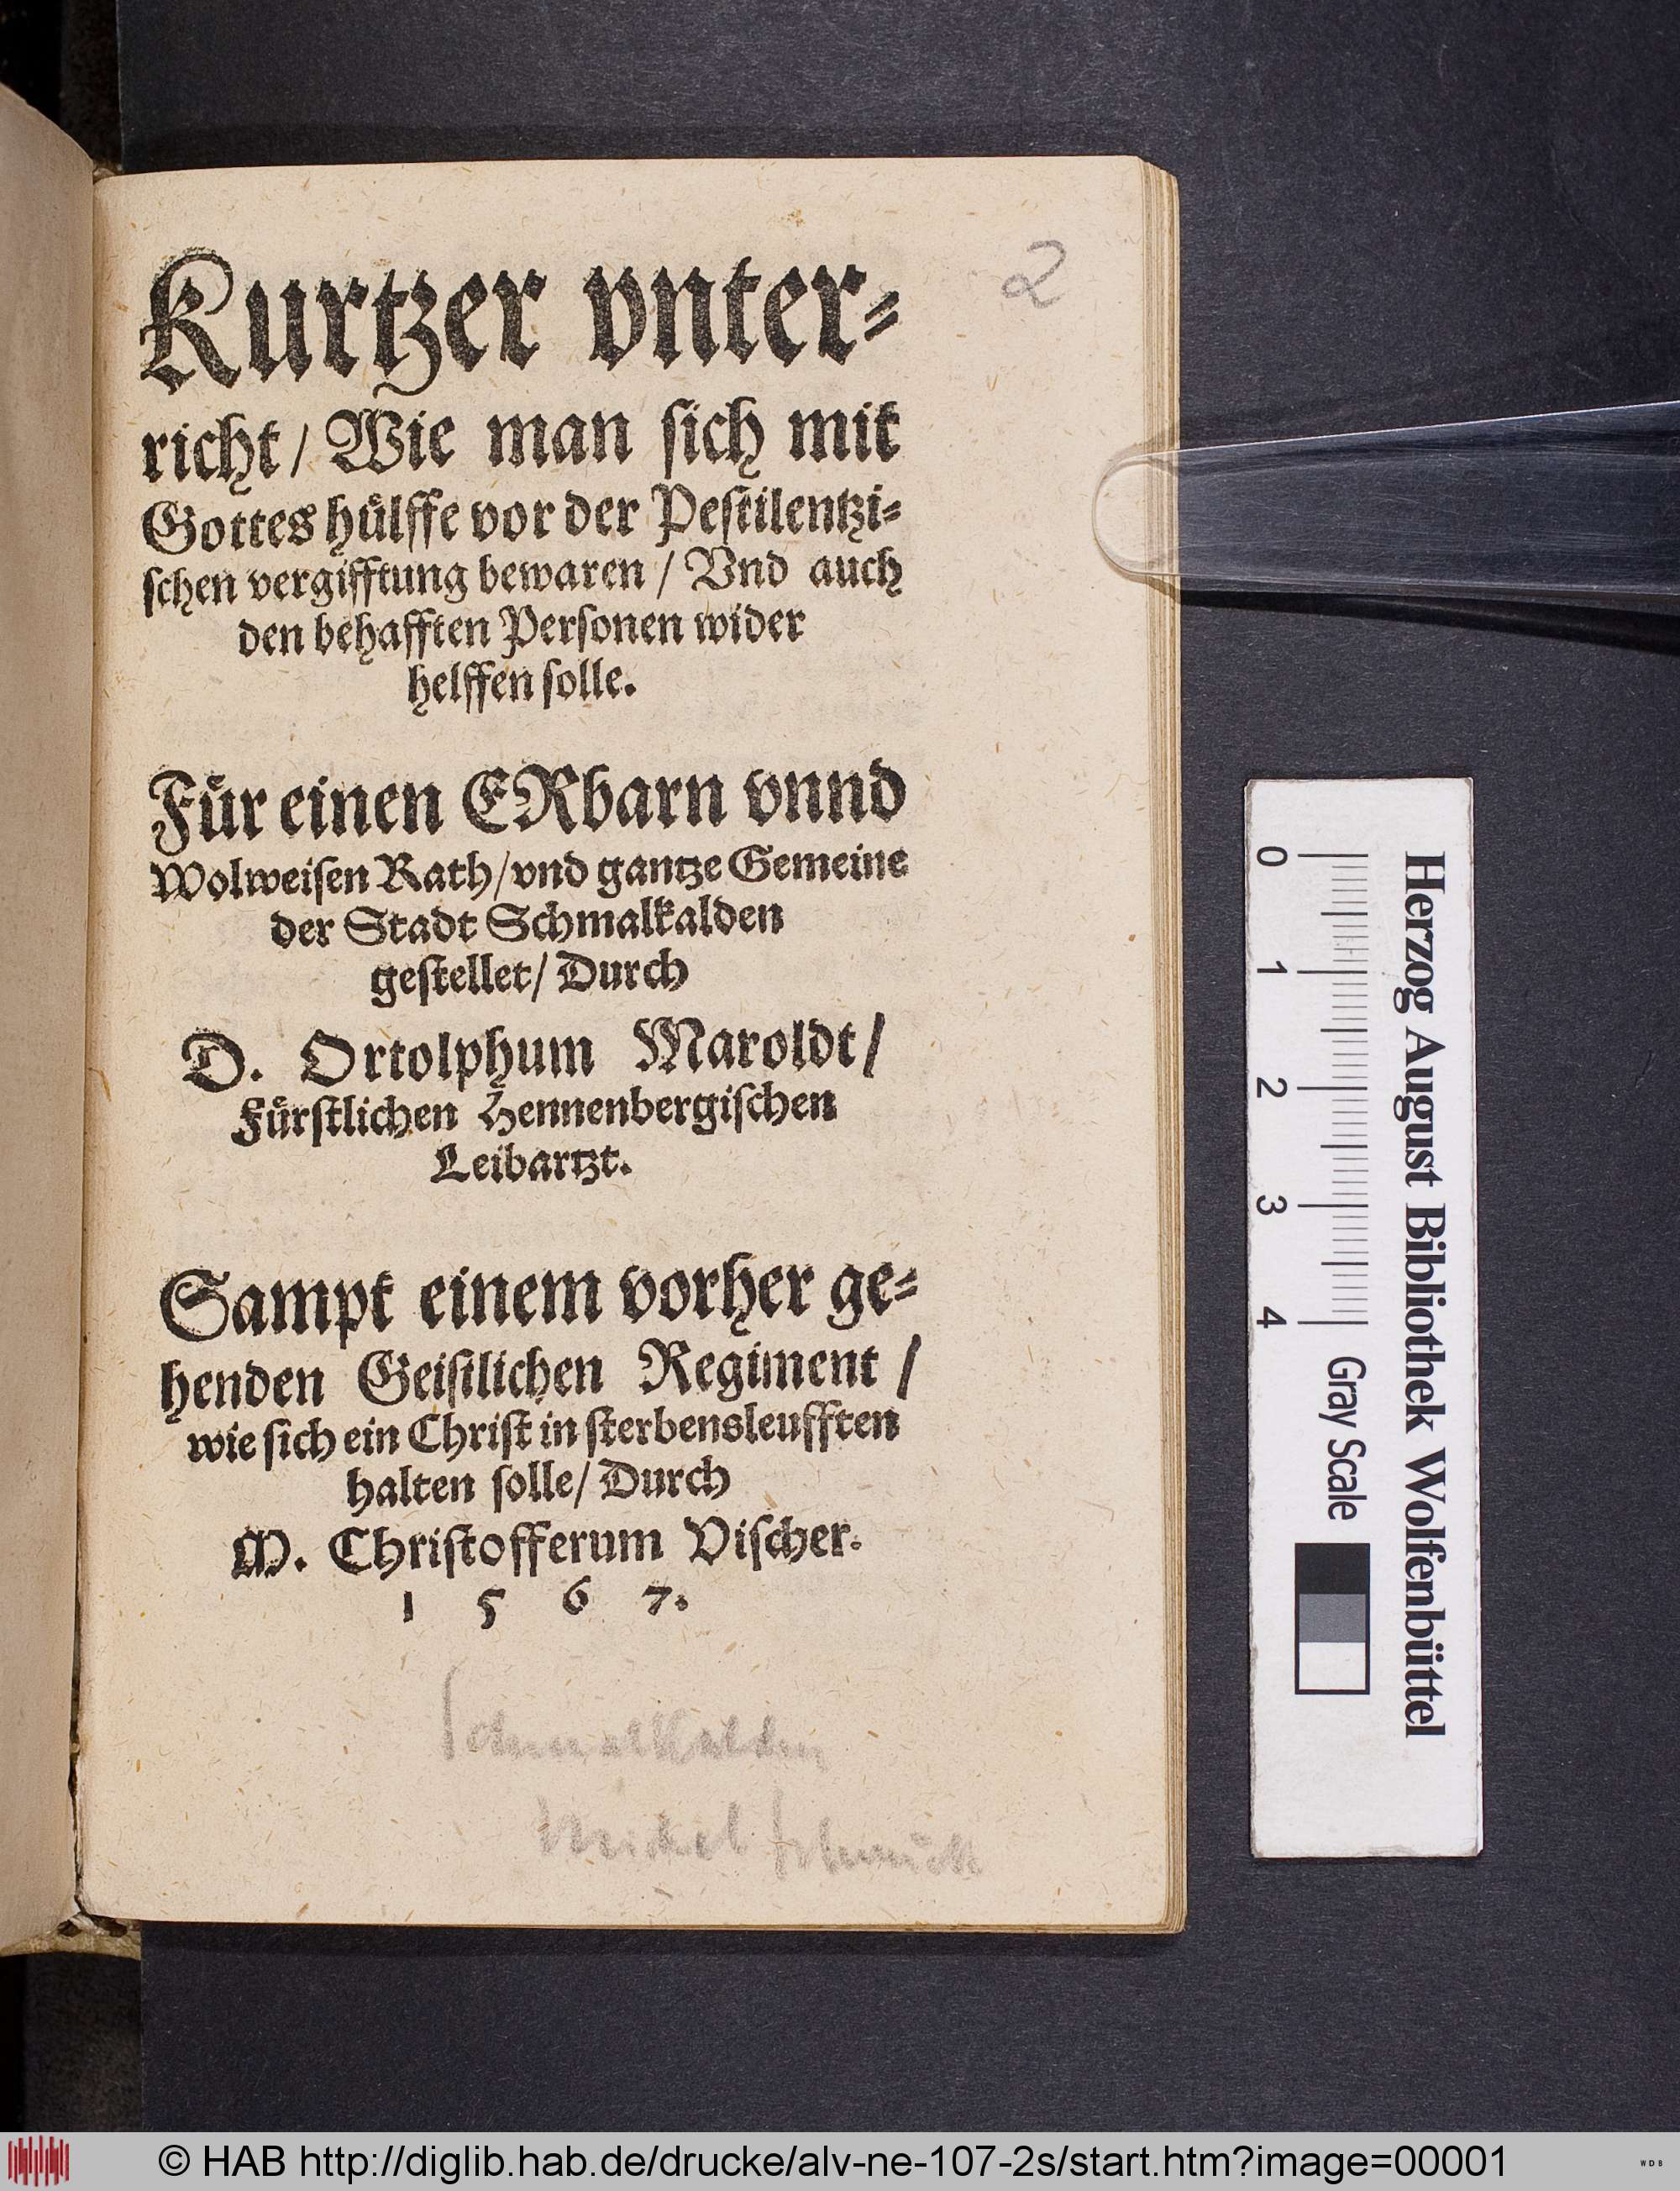 Kurtzer vnter⸗
2
richt/ Wie man ſich mit
Gottes huͤlffe vor der Peſtilentzi⸗
ſchen vergifftung bewaren / Vnd auch
den behafften Perſonen wider
helffen ſolle.
Fuͤr einen ERbarn vnnd
Wolweiſen Rath/vnd gantze Gemeine
der Stadt Schmalkalden
geſtellet/ Durch
D. Ortolphum Maroldt/
Fuͤrſtlichen Hennenbergiſchen
Leibartzt.
Sampt einem vorher ge⸗
henden Geiſtlichen Regiment /
wie ſich ein Chriſt in ſterbensleufften
halten ſolle/ Durch
M. Chriſtofferum Viſcher.
1 5 6 7.
Schmalkalden
Michel Schmück
Herzog August Bibliothek Wolfenbüttel
0 1 2 3 4 Gray Scale
© HAB http://diglib.hab.de/drucke/alv-ne-107-2s/start.htm?image=00001
WDB